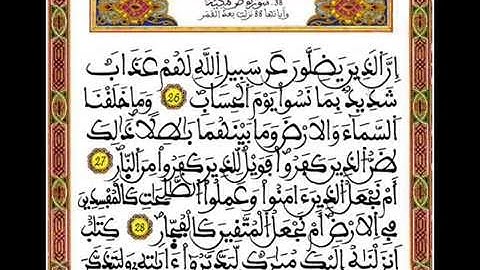 38 سورة ص مكية
وآياتها 88 نزلت بعد القمر
إِنَّ اَلذِينَ يَضِلُّونَ عَن سَبِيلِ اِللَّهِ لَهُمْ عَذَابٌ
شَدِيدٌ بِمَا نَسُواْ يَوْمَ اَلْحِسَابِ 26 وَمَا خَلَقْنَا
اَلسَّمَآءَ وَالَارْضَ وَمَا بَيْنَهُمَا بَٰطِلاً ذَٰلِكَ
ظَنُّ اُلذِينَ كَفَرُواْ فَوَيْلٌ لِّلذِينَ كَفَرُواْ مِنَ اَلنّ۪ارِ 27
أَمْ نَجْعَلُ اُلذِينَ ءَامَنُواْ وَعَمِلُواْ اُلصَّٰلِحَٰتِ كَالْمُفْسِدِينَ
فِے اِلَارْضِ أَمْ نَجْعَلُ اُلْمُتَّقِينَ كَالْفُجّ۪ارِ 28 كِتَٰبٌ
اَنزَلْنَٰهُ إِلَيْكَ مُبَٰرَكٌ لِّيَدَّبَّرُوٓاْ ءَايَٰتِهِۦ وَلِيَتَذَكَّرَ